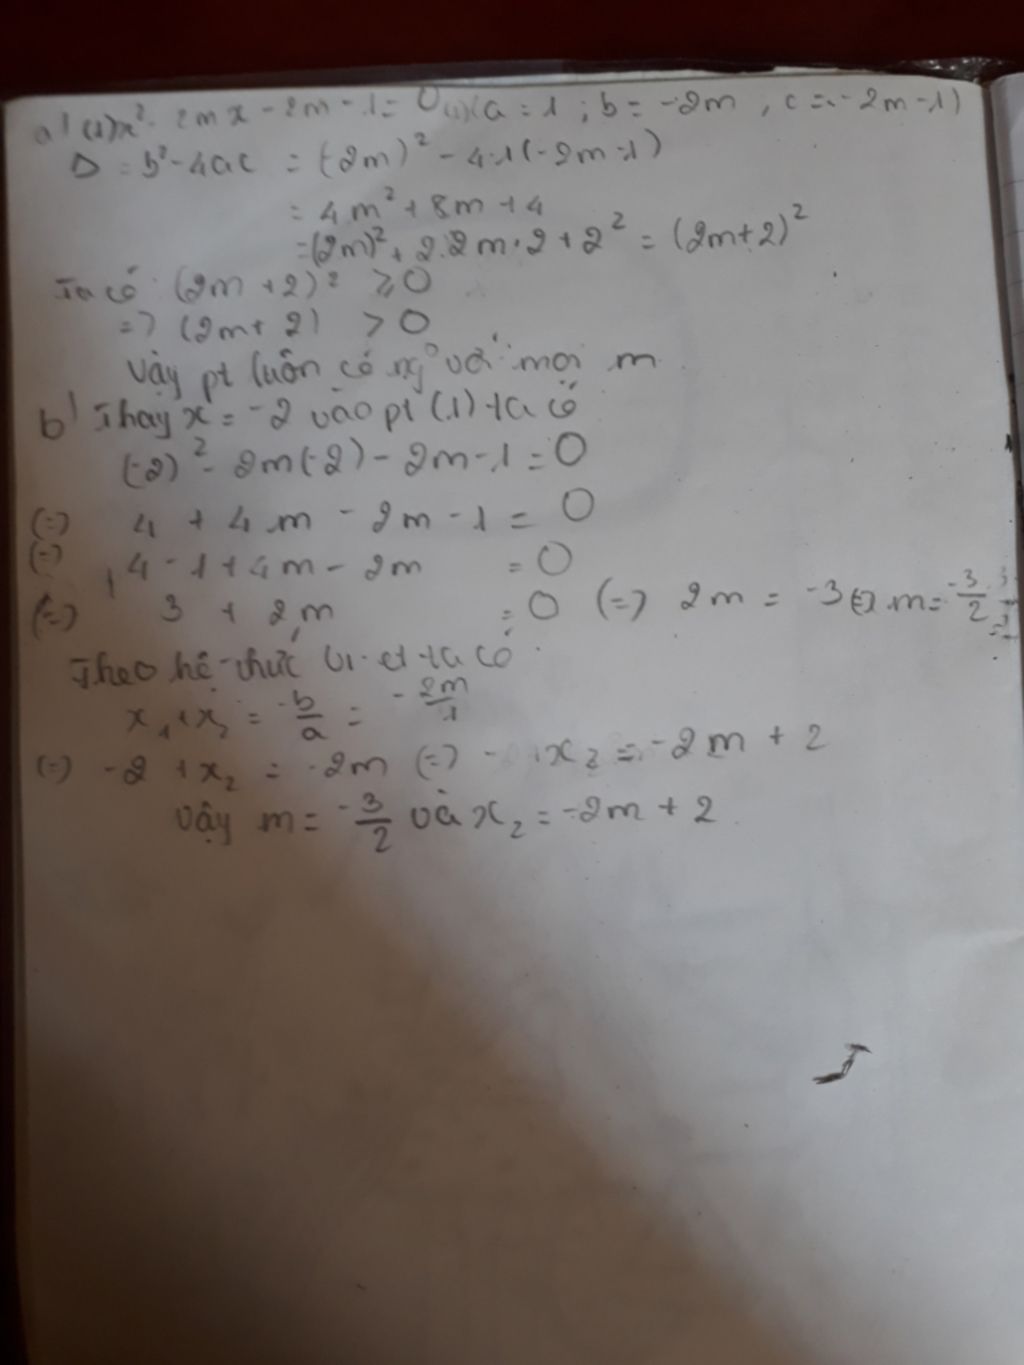 a) (1) x² - 2mx - 2m - 1 = 0 (1) (a = 1 ; b = -2m , c = -2m - 1)
Δ = b² - 4ac = (-2m)² - 4.1(-2m-1)
= 4m² + 8m + 4
= (2m)² + 2.2m.2 + 2² = (2m+2)²
Ta có (2m + 2)² ≥ 0
=> (2m + 2) > 0
Vậy pt luôn có ng⁰ với mọi m
b) Thay x = -2 vào pt (1) ta có
(-2)² - 2m(-2) - 2m - 1 = 0
(=) 4 + 4m - 2m - 1 = 0
(=) 4 - 1 + 4m - 2m = 0
(=) 3 + 2m = 0 (=) 2m = -3 (=) m = -3/2
Theo hệ thức Vi-et ta có
x₁ + x₂ = -b/a = -2m/1
(=) -2 + x₂ = -2m (=) x₂ = -2m + 2
Vậy m = -3/2 và x₂ = -2m + 2